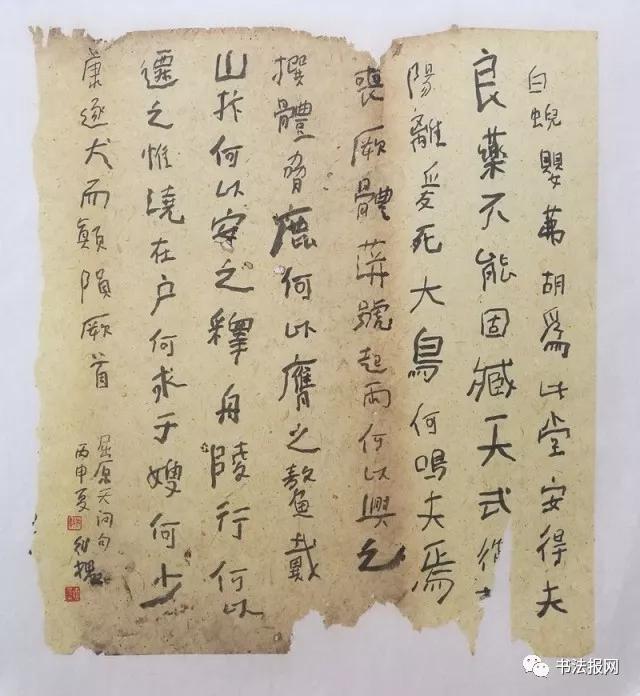 白蜺嬰茀胡爲此堂安得夫
良藥不能固臧天式從
陽離爰死大鳥何鳴夫焉
喪厥體蓱號起雨何以興之
撰體脅鹿何以膺之鼇戴
山抃何以安之釋舟陵行何以
遷之惟澆在户何求于嫂何少
康逐犬而顛隕厥首
屈原天问句
丙申夏
书法报网